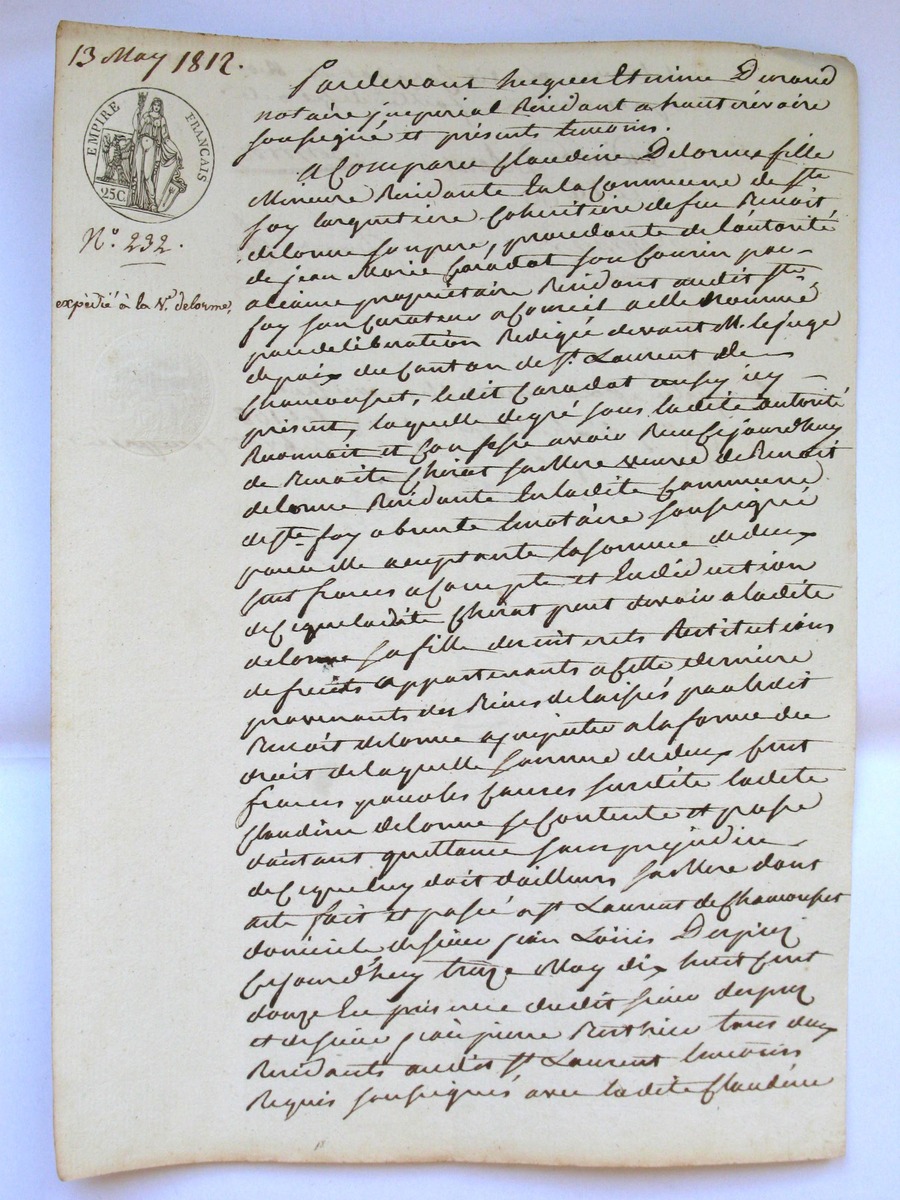 13 May 1812.
EMPIRE FRANCAIS
25 C.
N.° 232.
expédié à la V.e delorme,
Pardevant Jacques Etienne Durand
notaire jmperial Residant a hauterivoire
soussigné et présents temoins.
A Comparu Claudine Delorme fille
Mineure Residante En la Commune de Ste
foy largentiere Coheritiere de feu Benoit
delorme son pere, procedante de l'autorité
de jean Marie Caradot son Cousin par
alliance propriétaire Residant audit Ste
foy son Curateur a Conseil a elle Nommé
par deliberation Redigée devant M. le juge
de paix du Canton de St. Laurent de
Chamousset, ledit Caradot aussy icy
présent, laquelle de gré sous ladite autorité
Reconnait et Confesse avoir Reçu Cejourd'huy
de Benoite Chirat sa Mere veuve de Benoit
delorme Residante En ladite Commune
de Ste foy absente le notaire soussigné
pour elle acceptante la somme de deux
cent francs a Compte et En déduction
de Ce que ladite Chirat peut devoir a ladite
delorme sa fille des interets Restitutions
de fruits appartenants a Cette derniere
provenants des Biens delaissés par ledit
Benoit delorme a jmputer a la forme du
droit de laquelle somme de deux Cent
francs pour les Causes susdite ladite
Claudine delorme se Contente et passe
d'autant quittance sans prejudice
de Ce que luy doit d'ailleurs sa Mere dont
acte fait et passé a St Laurent de Chamousset
domicile de sieur jean Louis
Cejourd'huy treize May dix huit Cent
douze En presence dudit sieur
et de sieur jean pierre Berthier tous deux
Residants audit St Laurent temoins
Requis soussignés avec ladite Claudine